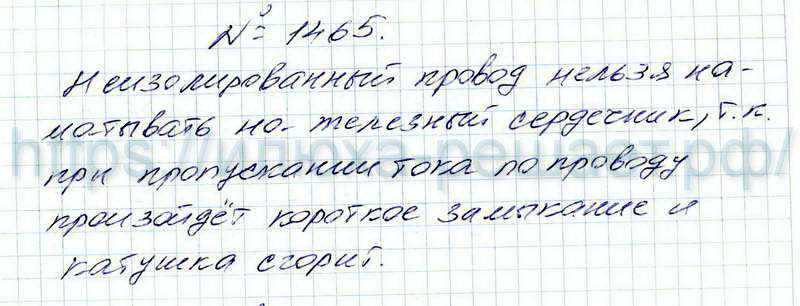 № 1465.
Неизолированный провод нельзя на-
матывать на железный сердечник, т.к.
при пропускании тока по проводу
произойдёт короткое замыкание и
катушка сгорит.